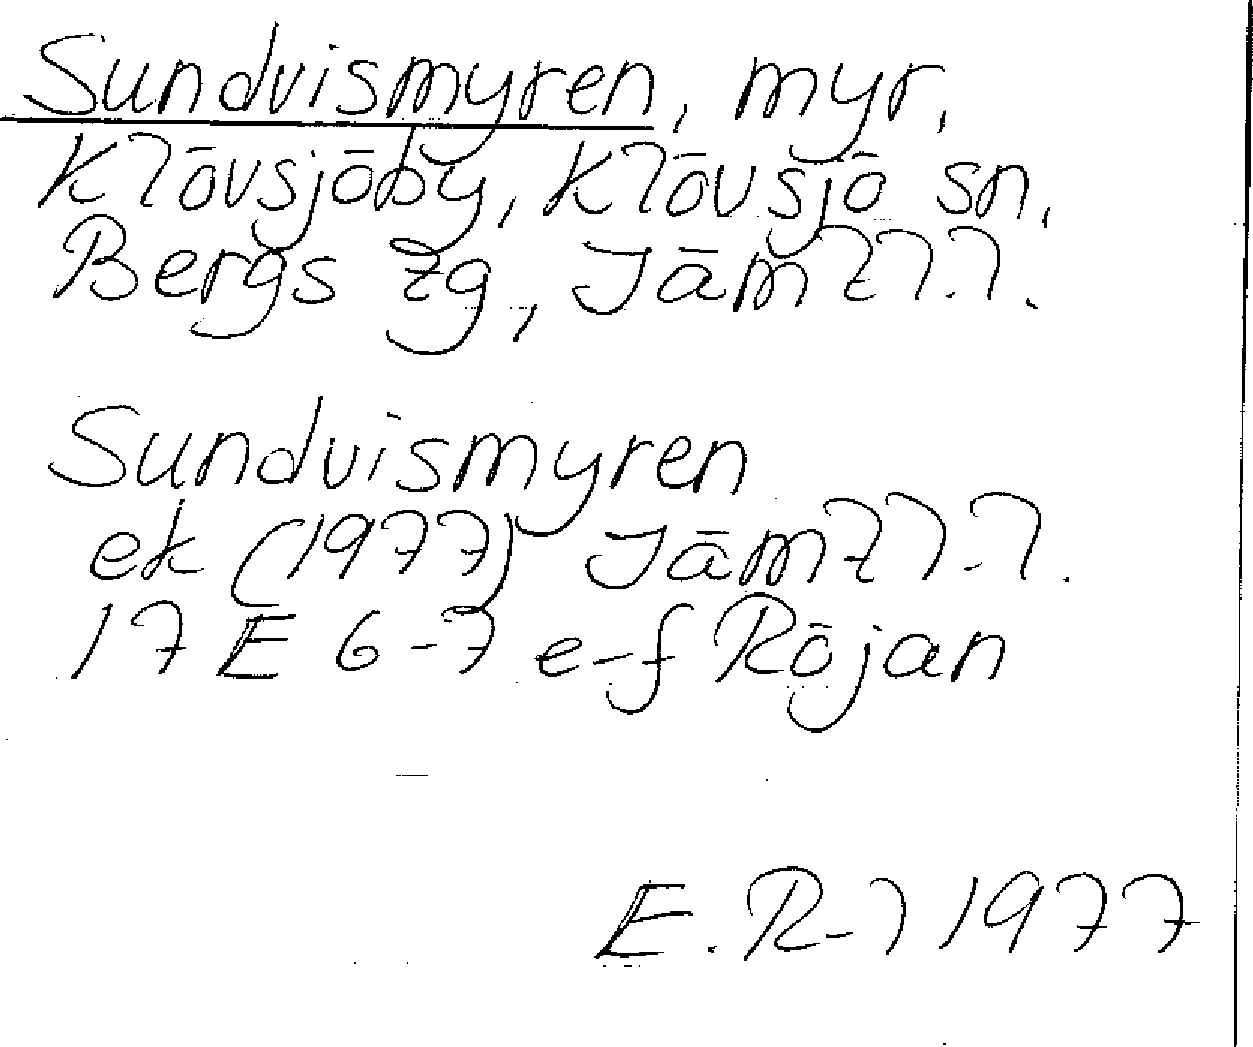 Sundvismyren, myr,
Klövsjöby, Klövsjö sn,
Bergs tg, Jämtl.l.
Sundvismyren
ek (1977) Jämtl.l.
17 E 6-7 e-f Röjan
E.R-l 1977